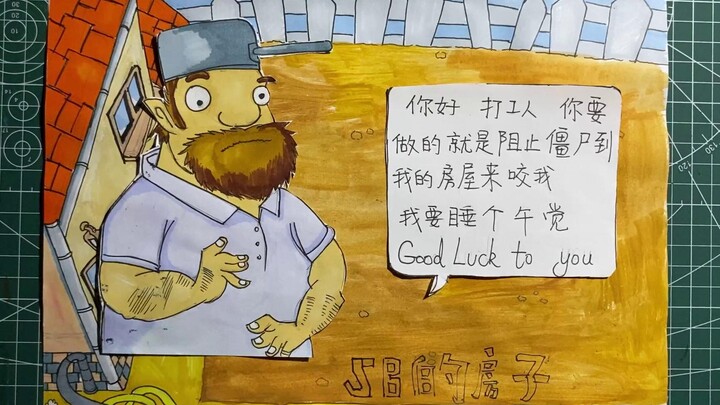 你好 打工人 你要
做的就是阻止僵尸到
我的房屋来咬我
我要睡个午觉
Good Luck to you
SB的房子